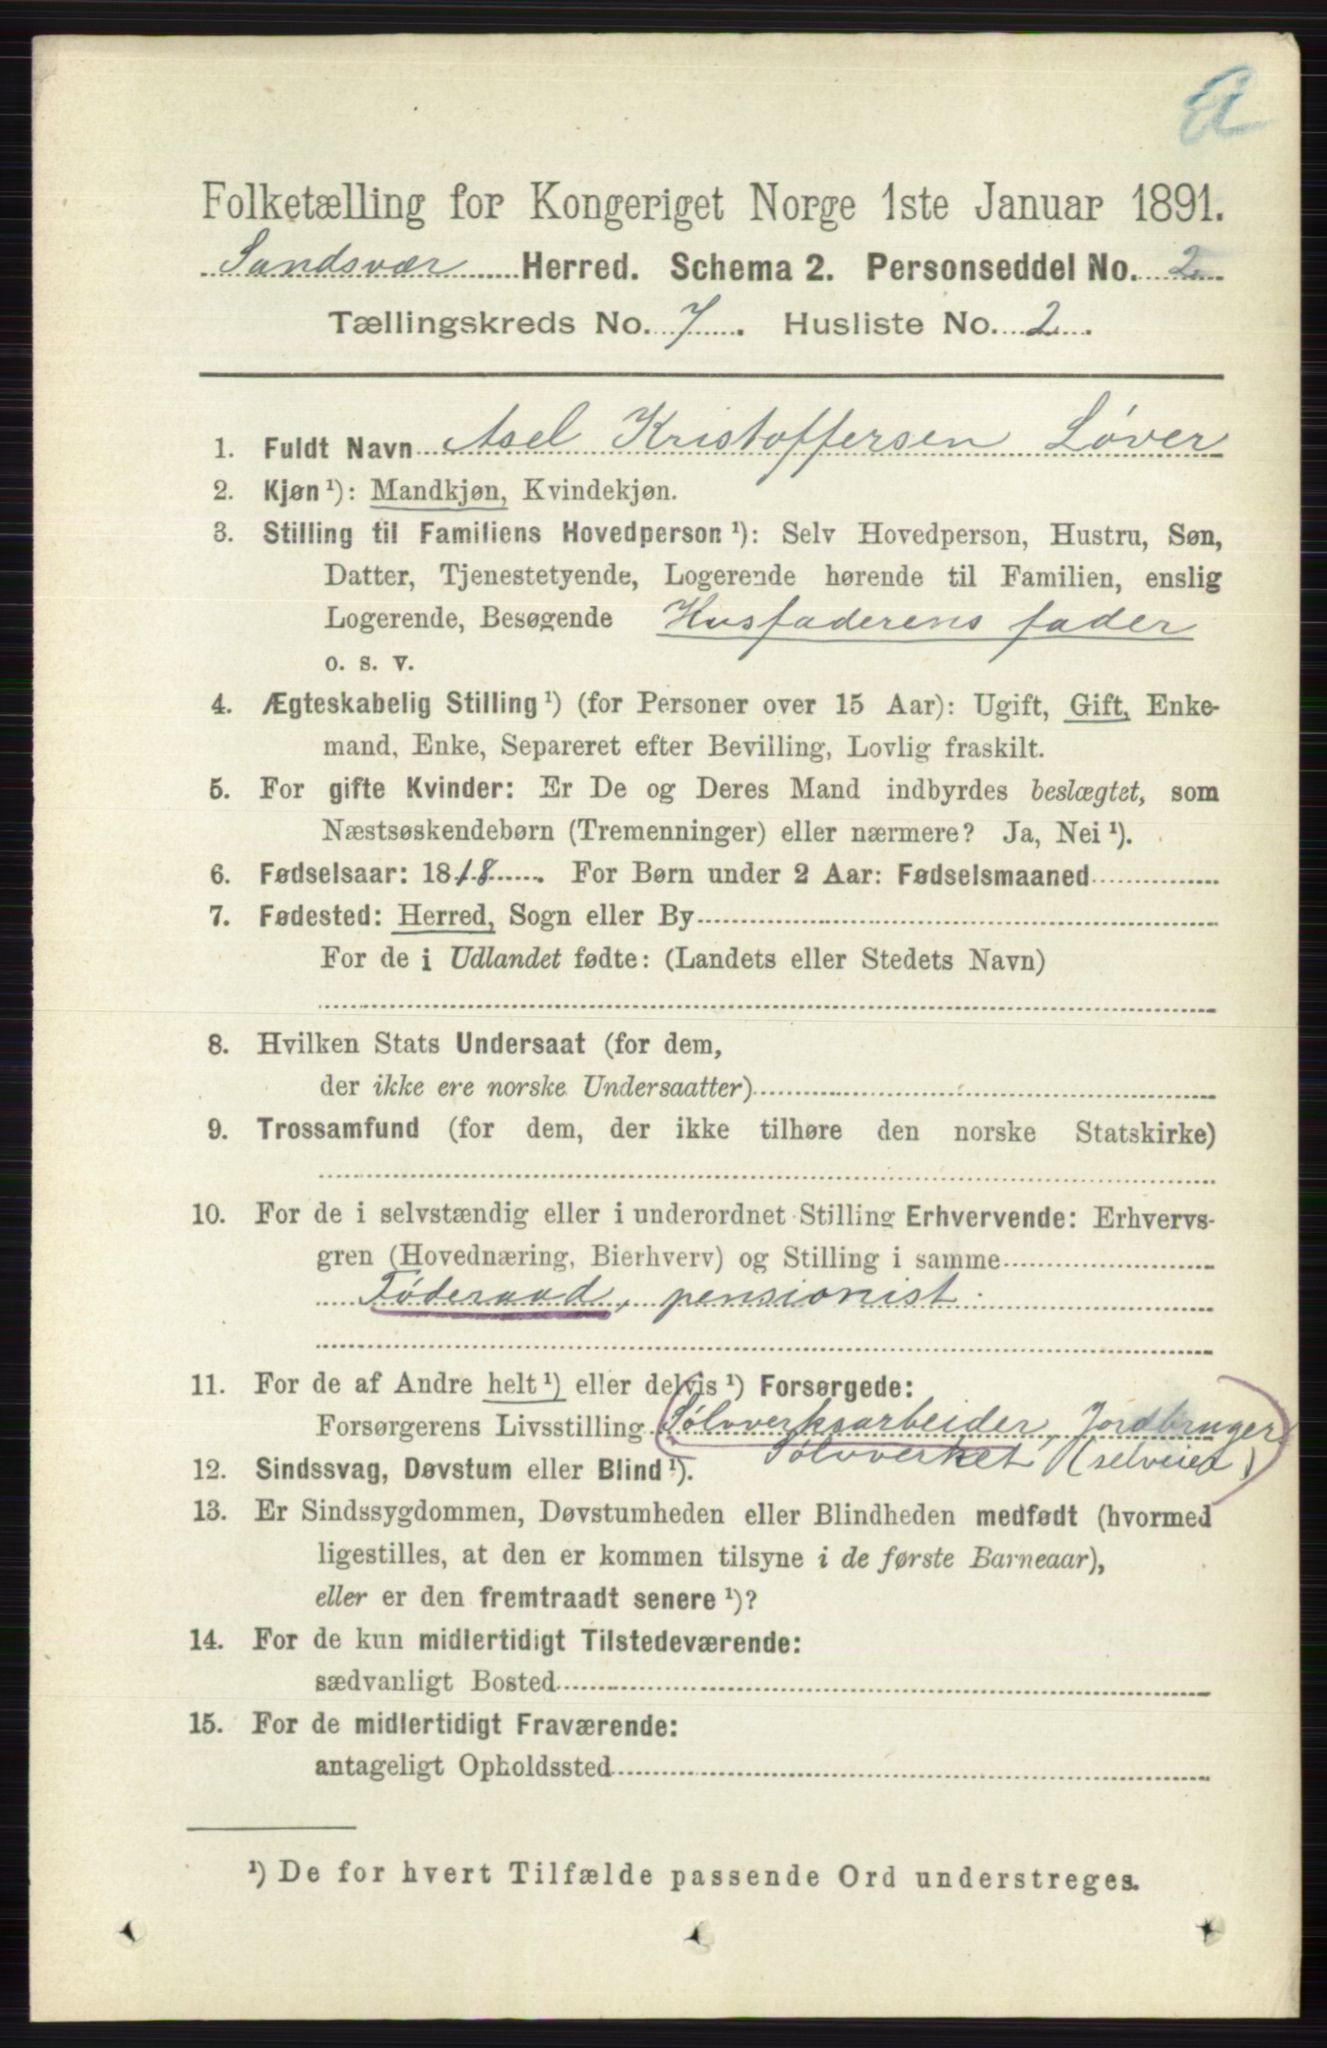 a
Folketælling for Kongeriget Norge 1ste Januar 1891.
Sandsvær Herred. Schema 2. Personseddel No. 2
Tællingskreds No. 7. Husliste No. 2.
1. Fuldt Navn Asel Kristoffersen Løver
2. Kjøn ¹): Mandkjøn, Kvindekjøn.
3. Stilling til Familiens Hovedperson ¹): Selv Hovedperson, Hustru, Søn,
Datter, Tjenestetyende, Logerende hørende til Familien, enslig
Logerende, Besøgende Husfaderens fader
o. s. v.
4. Ægteskabelig Stilling ¹) (for Personer over 15 Aar): Ugift, Gift, Enke-
mand, Enke, Separeret efter Bevilling, Lovlig fraskilt.
5. For gifte Kvinder: Er De og Deres Mand indbyrdes beslægtet, som
Næstsøskendebørn (Tremenninger) eller nærmere? Ja, Nei ¹).
6. Fødselsaar: 1818. For Børn under 2 Aar: Fødselsmaaned
7. Fødested: Herred, Sogn eller By
For de i Udlandet fødte: (Landets eller Stedets Navn)
8. Hvilken Stats Undersaat (for dem,
der ikke ere norske Undersaatter)
9. Trossamfund (for dem, der ikke tilhøre den norske Statskirke)
10. For de i selvstændig eller i underordnet Stilling Erhvervende: Erhvervs-
gren (Hovednæring, Bierhverv) og Stilling i samme
Føderaad, pensionist.
11. For de af Andre helt ¹) eller delvis ¹) Forsørgede:
Forsørgerens Livsstilling Sølvverksarbeider, Jordbruger
Sølvverket (selveier)
12. Sindssvag, Døvstum eller Blind ¹).
13. Er Sindssygdommen, Døvstumheden eller Blindheden medfødt (hvormed
ligestilles, at den er kommen tilsyne i de første Barneaar),
eller er den fremtraadt senere ¹)?
14. For de kun midlertidigt Tilstedeværende:
sædvanligt Bosted
15. For de midlertidigt Fraværende:
antageligt Opholdssted
¹) De for hvert Tilfælde passende Ord understreges.